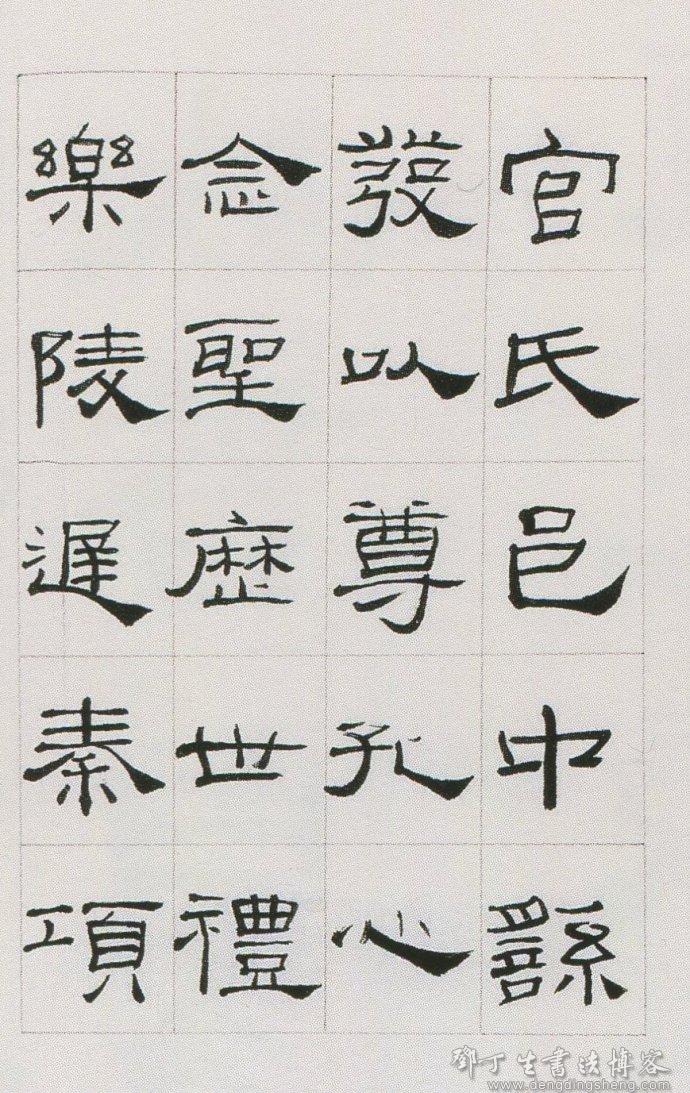 官氏邑中繇
發以尊孔心
念聖歷世禮
樂陵遲秦項
鄧丁生書法博客
www.dengdingsheng.com